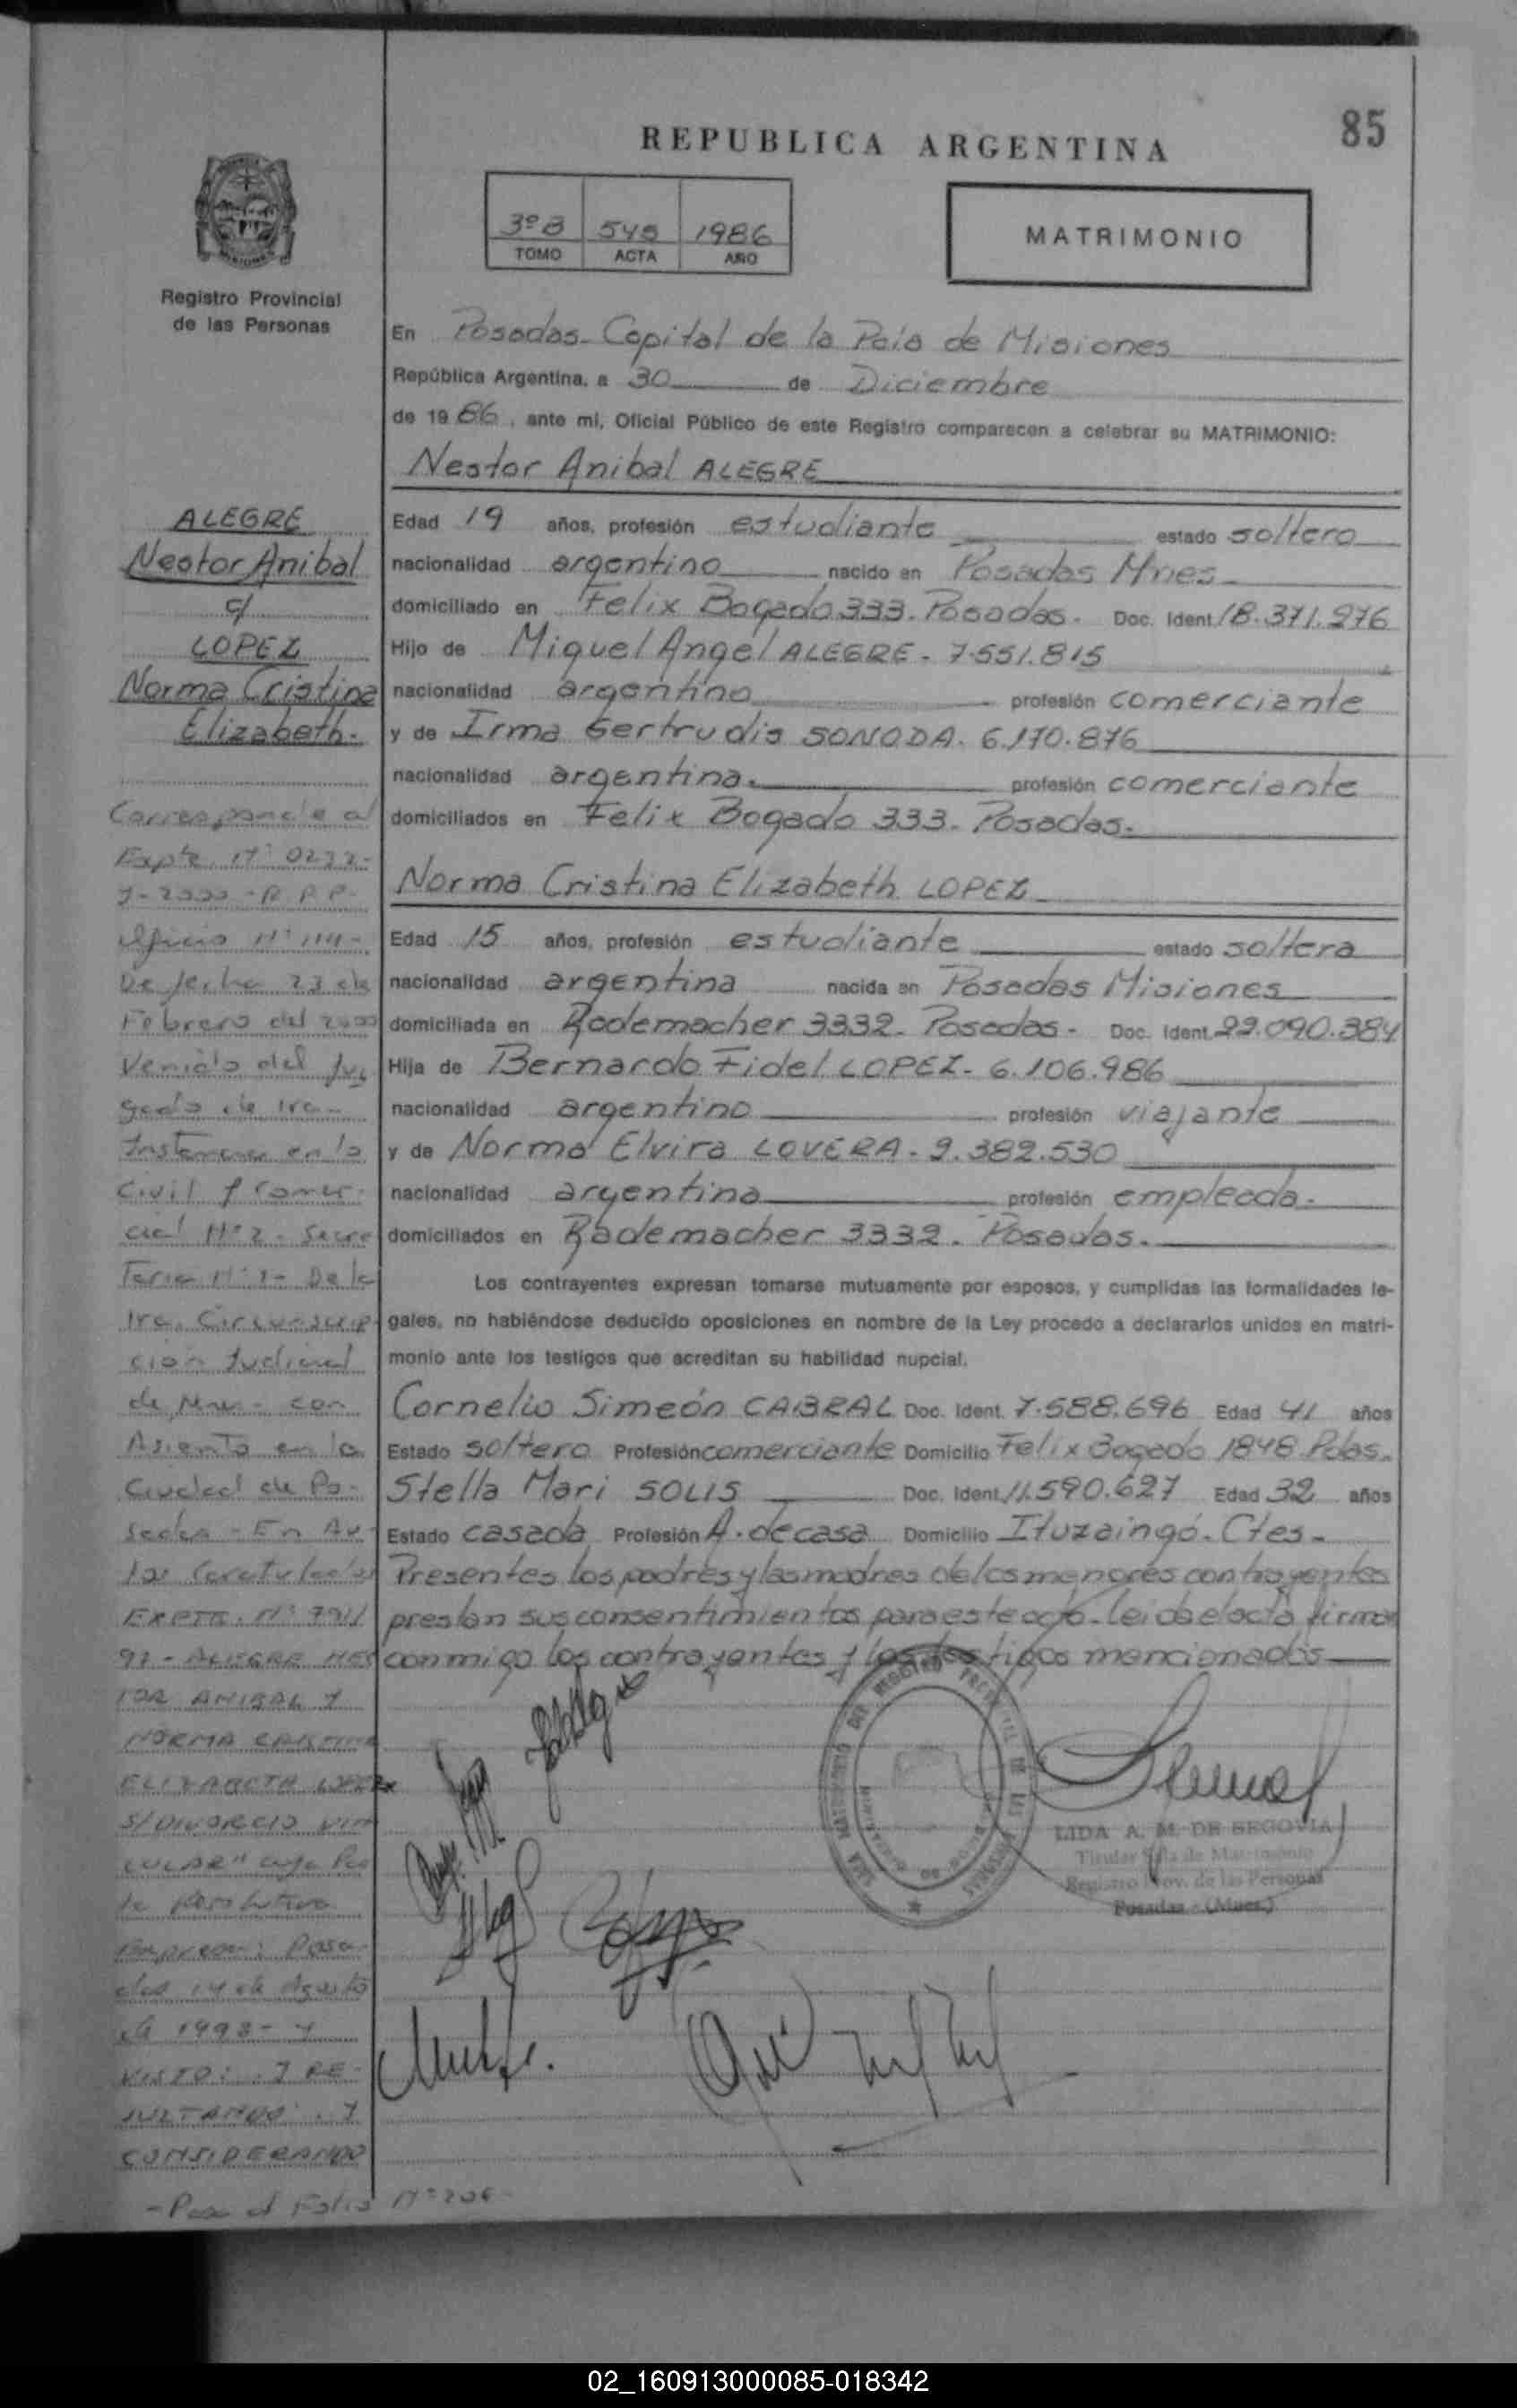 85
REPUBLICA ARGENTINA
3º B 545 1986
TOMO ACTA AÑO
MATRIMONIO
MISIONES
Registro Provincial
de las Personas
En Posadas - Capital de la Pcia de Misiones
República Argentina, a 30 de Diciembre
de 1986, ante mí, Oficial Público de este Registro comparecen a celebrar su MATRIMONIO:
Nestor Anibal ALEGRE
Edad 19 años, profesión estudiante estado soltero
nacionalidad argentino nacido en Posadas Mnes
domiciliado en Felix Bogado 333. Posadas. Doc. Ident. 18.371.276
Hijo de Miguel Angel ALEGRE - 7.551.815
nacionalidad argentino profesión comerciante
y de Irma Gertrudis SONODA. 6.170.876
nacionalidad argentina. profesión comerciante
domiciliados en Felix Bogado 333. Posadas.
Norma Cristina Elizabeth LOPEZ
Edad 15 años, profesión estudiante estado soltera
nacionalidad argentina nacida en Posadas Misiones
domiciliada en Rademacher 3332. Posadas. Doc. Ident. 22.090.384
Hija de Bernardo Fidel LOPEZ - 6.106.986
nacionalidad argentino profesión viajante
y de Norma Elvira LOVERA - 9.382.530
nacionalidad argentina profesión empleada.
domiciliados en Rademacher 3332. Posadas.
Los contrayentes expresan tomarse mutuamente por esposos, y cumplidas las formalidades le-
gales, no habiéndose deducido oposiciones en nombre de la Ley procedo a declararlos unidos en matri-
monio ante los testigos que acreditan su habilidad nupcial.
Cornelio Simeón CABRAL Doc. Ident. 7.588.696 Edad 41 años
Estado soltero Profesión comerciante Domicilio Felix Bogado 1848 Pdas.
Stella Mari SOLIS Doc. Ident. 11.590.627 Edad 32 años
Estado casada Profesión A. de casa Domicilio Ituzaingó - Ctes -
Presentes los padres y las madres de los menores contrayentes
prestan sus consentimientos para este acto - leida el acta firman
conmigo los contrayentes y los testigos mencionados
LIDA A. M. DE SEGOVIA
Titular Sala de Matrimonio
Registro Prov. de las Personas
Posadas - (Mnes.)
ALEGRE
Nestor Anibal
c/
LOPEZ
Norma Cristina
Elizabeth.
Corresponde al
Expte. Nº
Oficio Nº
De fecha 23 de
Febrero del 2000
Venido del Juz
gado de 1ra
Instancia en lo
Civil y Comer-
cial Nº 2 - Secre
Taria Nº 1 - De la
1ra. Circunscrip
cion Judicial
de Mnes - con
Asiento en la
Ciudad de Po-
sadas - En Au-
tos Caratulados
EXPTE. Nº
ALEGRE NES
TOR ANIBAL Y
NORMA CRISTINA
ELIZABETH LOPEZ
S/ DIVORCIO VIN
CULAR" cuya Par
te Resolutiva
Expresa: Posa-
das 14 de Agosto
de 1998 - Y
VISTO: . Y RE-
SULTANDO: . Y
CONSIDERANDO
- Pasa al Folio Nº 206 -
02_160913000085-018342